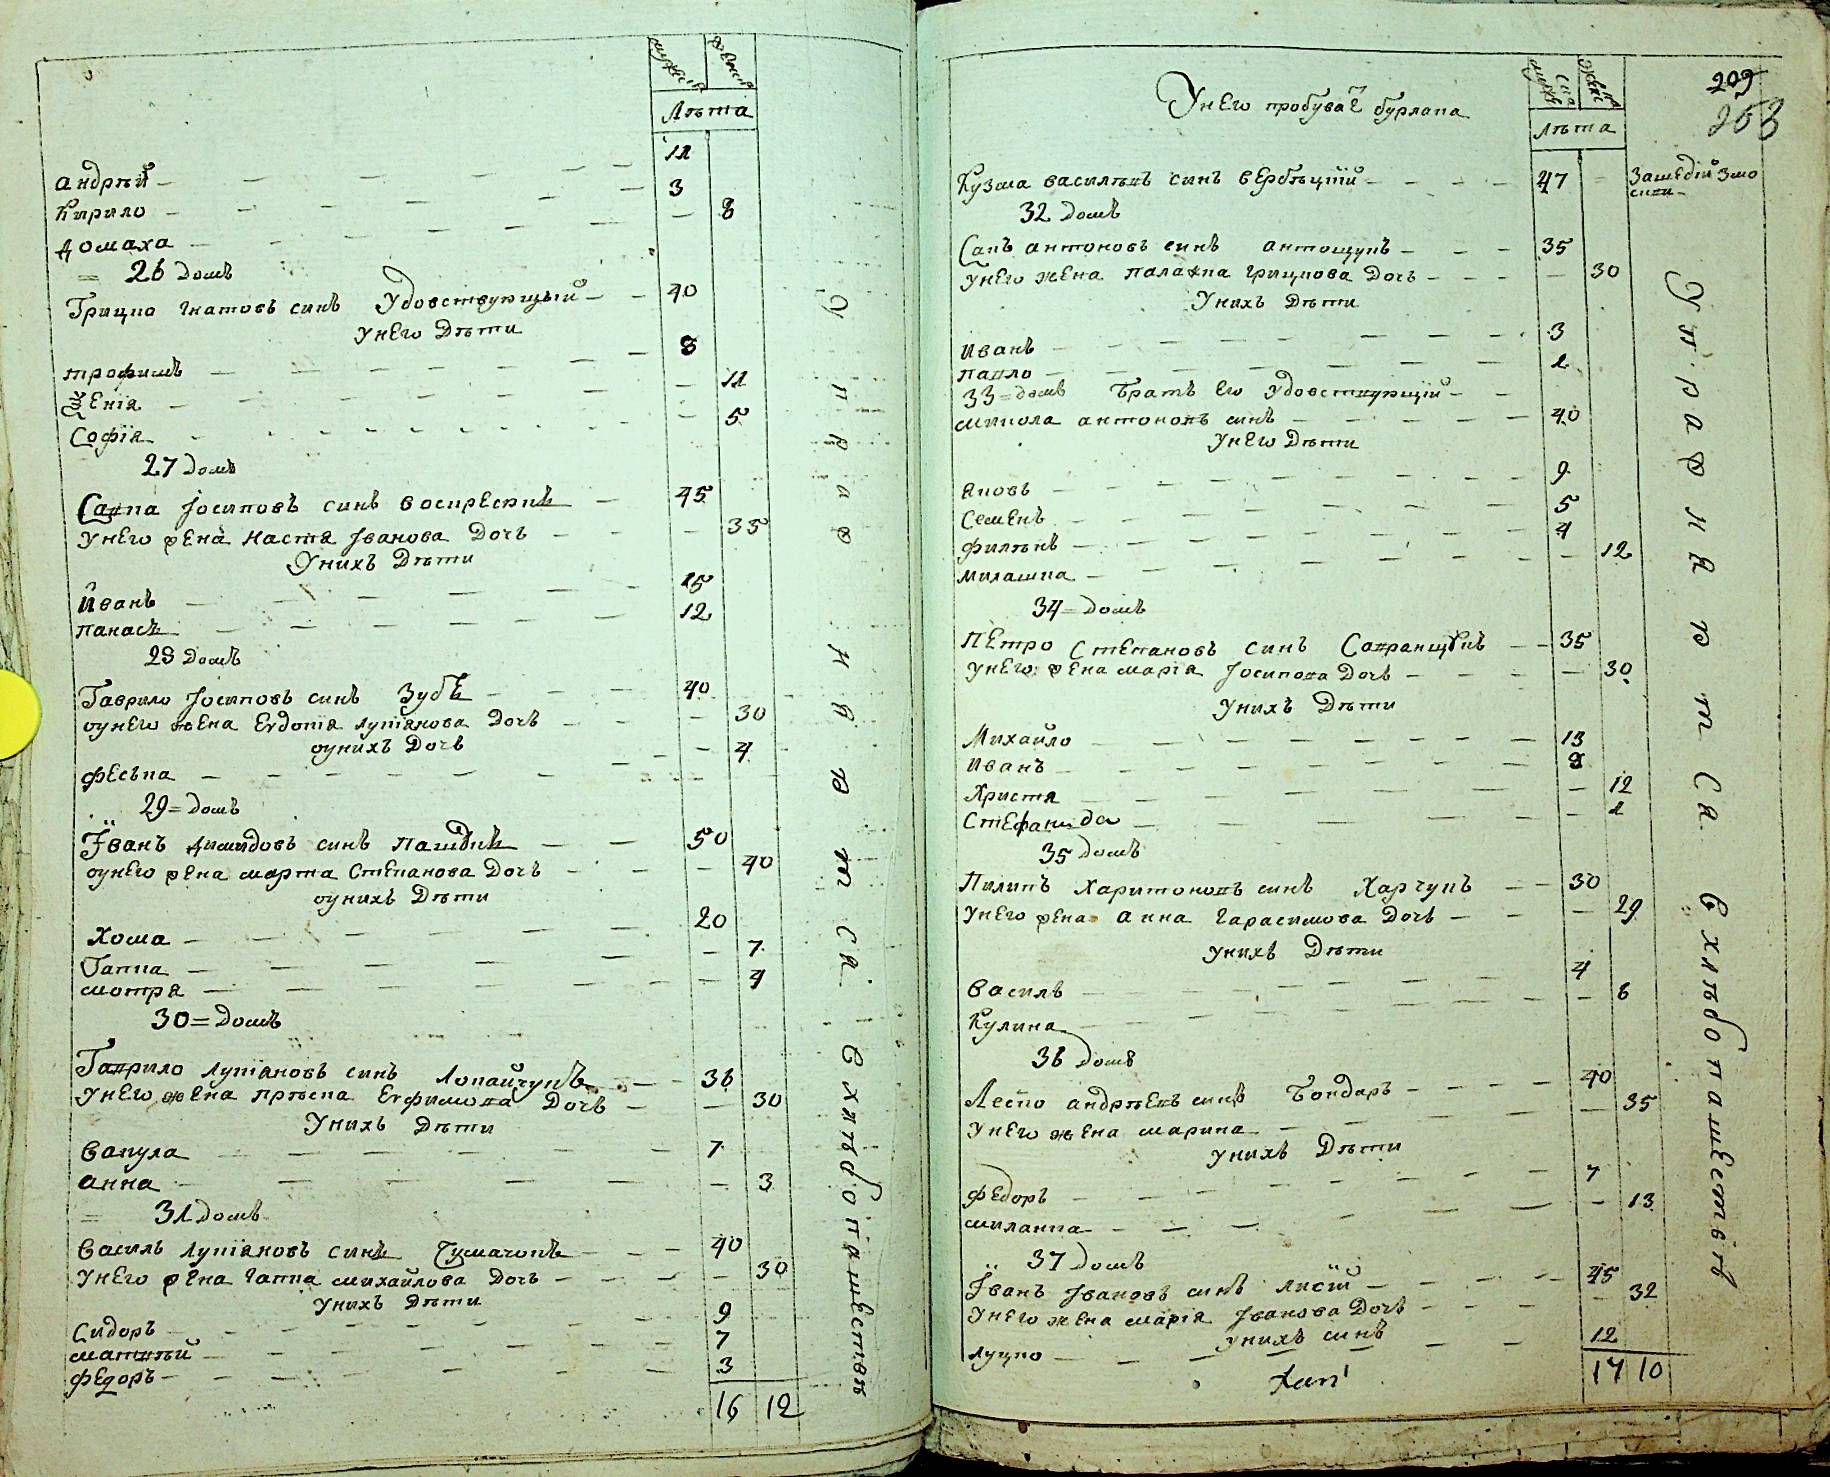 мужска женска
Лѣта
андрѣй 11
Кирило 3
домаха 8
= 26 домъ
Грицко гнатовъ синъ Удовствующый 40
Унего Дѣти
трофимъ 8
Ѯенія 11
Софія 5
27 домъ
Савка Іосиповъ синъ воскресникъ 45
Унего жена настя Іванова Дочъ 35
Унихъ Дѣти
Иванъ 15
панасъ 12
28 домъ
Гаврило Іосиповъ синъ Зубъ 40
оунего жена Евдокія лукіянова дочъ 30
оунихъ дочъ
феська 4
29= домъ
Іванъ димидовъ синъ 50
оунего жена марта Степанова дочъ 40
оунихъ Дѣти
Хома 20
Гапка 7
мотря 4
30= домъ
Гаврило лукіяновъ синъ Лопайчукъ 36
Унего жена пріська Евфимова дочъ 30
Унихъ Дѣти
вакула 7
анна 3
= 31 домъ
Василь лукіяновъ синъ Чумачокъ 40
Унего жена гапка михайлова дочъ 30
Унихъ Дѣти
Сидоръ 9
матвѣй 7
федоръ 3
16 12
Украф няжтся
в хлѣбопашествѣ
209
253
Унего пробувае бурлака
Лѣта
Кузма василѣвъ синъ вербѣцкій 47
32 домъ
Сакъ антоновъ синъ антощукъ 35
унего жена палажка грицкова Дочъ 30
Унихъ Дѣти
иванъ 3
павло 1
33= домъ Братъ его Удовствующій
микола антоновъ синъ 40
унего Дѣти
яковъ 9
Семенъ 5
филѣпъ 4
милашка 12
34= домъ
Петро Степановъ синъ 35
унего жена марія Іосипова Дочъ 30
Унихъ Дѣти
Михайло 13
иванъ 9
Христя 12
Стефанида 1
35 домъ
Пилипъ Харитоновъ синъ Харчукъ 30
унего жена анна гарасимова дочъ 29
унихъ Дѣти
Василь 4
Кулина 6
36 домъ
Лесько андрѣевъ синъ Бондаръ 40
унего жена марина 35
унихъ Дѣти
федоръ 7
миланка 13
37 домъ
Іванъ Івановъ синъ лисій 45
Унего жена марія Іванова Дочъ 32
унихъ синъ
луцко 12
17 10